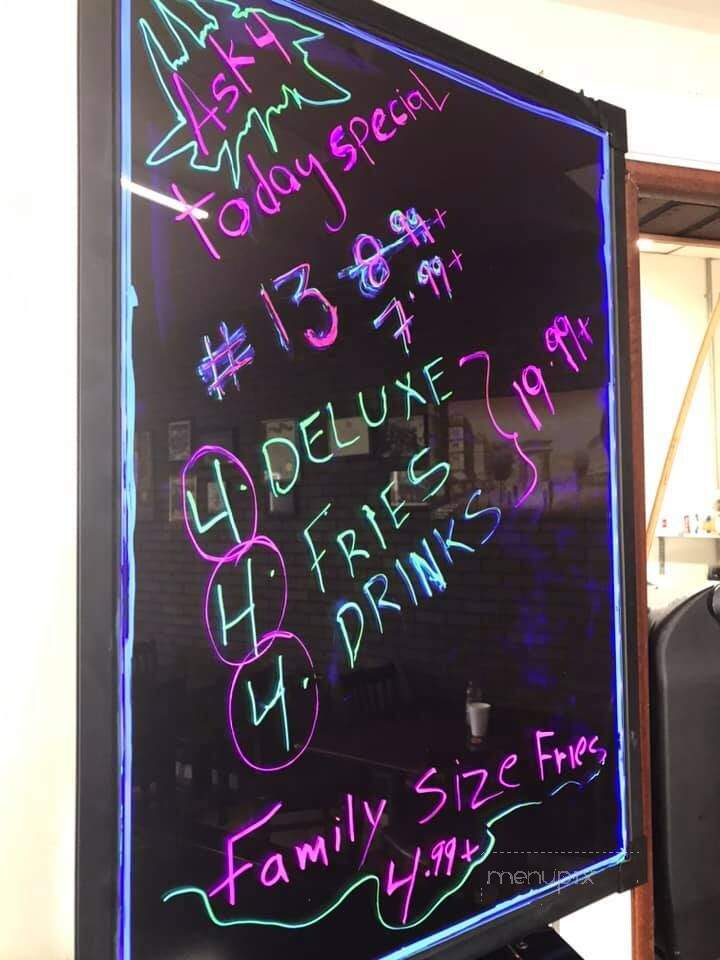 Ask 4
today special
# 13 8.99+
7.99+
4. DELUXE
4. FRIES
4. DRINKS
19.99+
Family Size Fries
4.99+
menupix